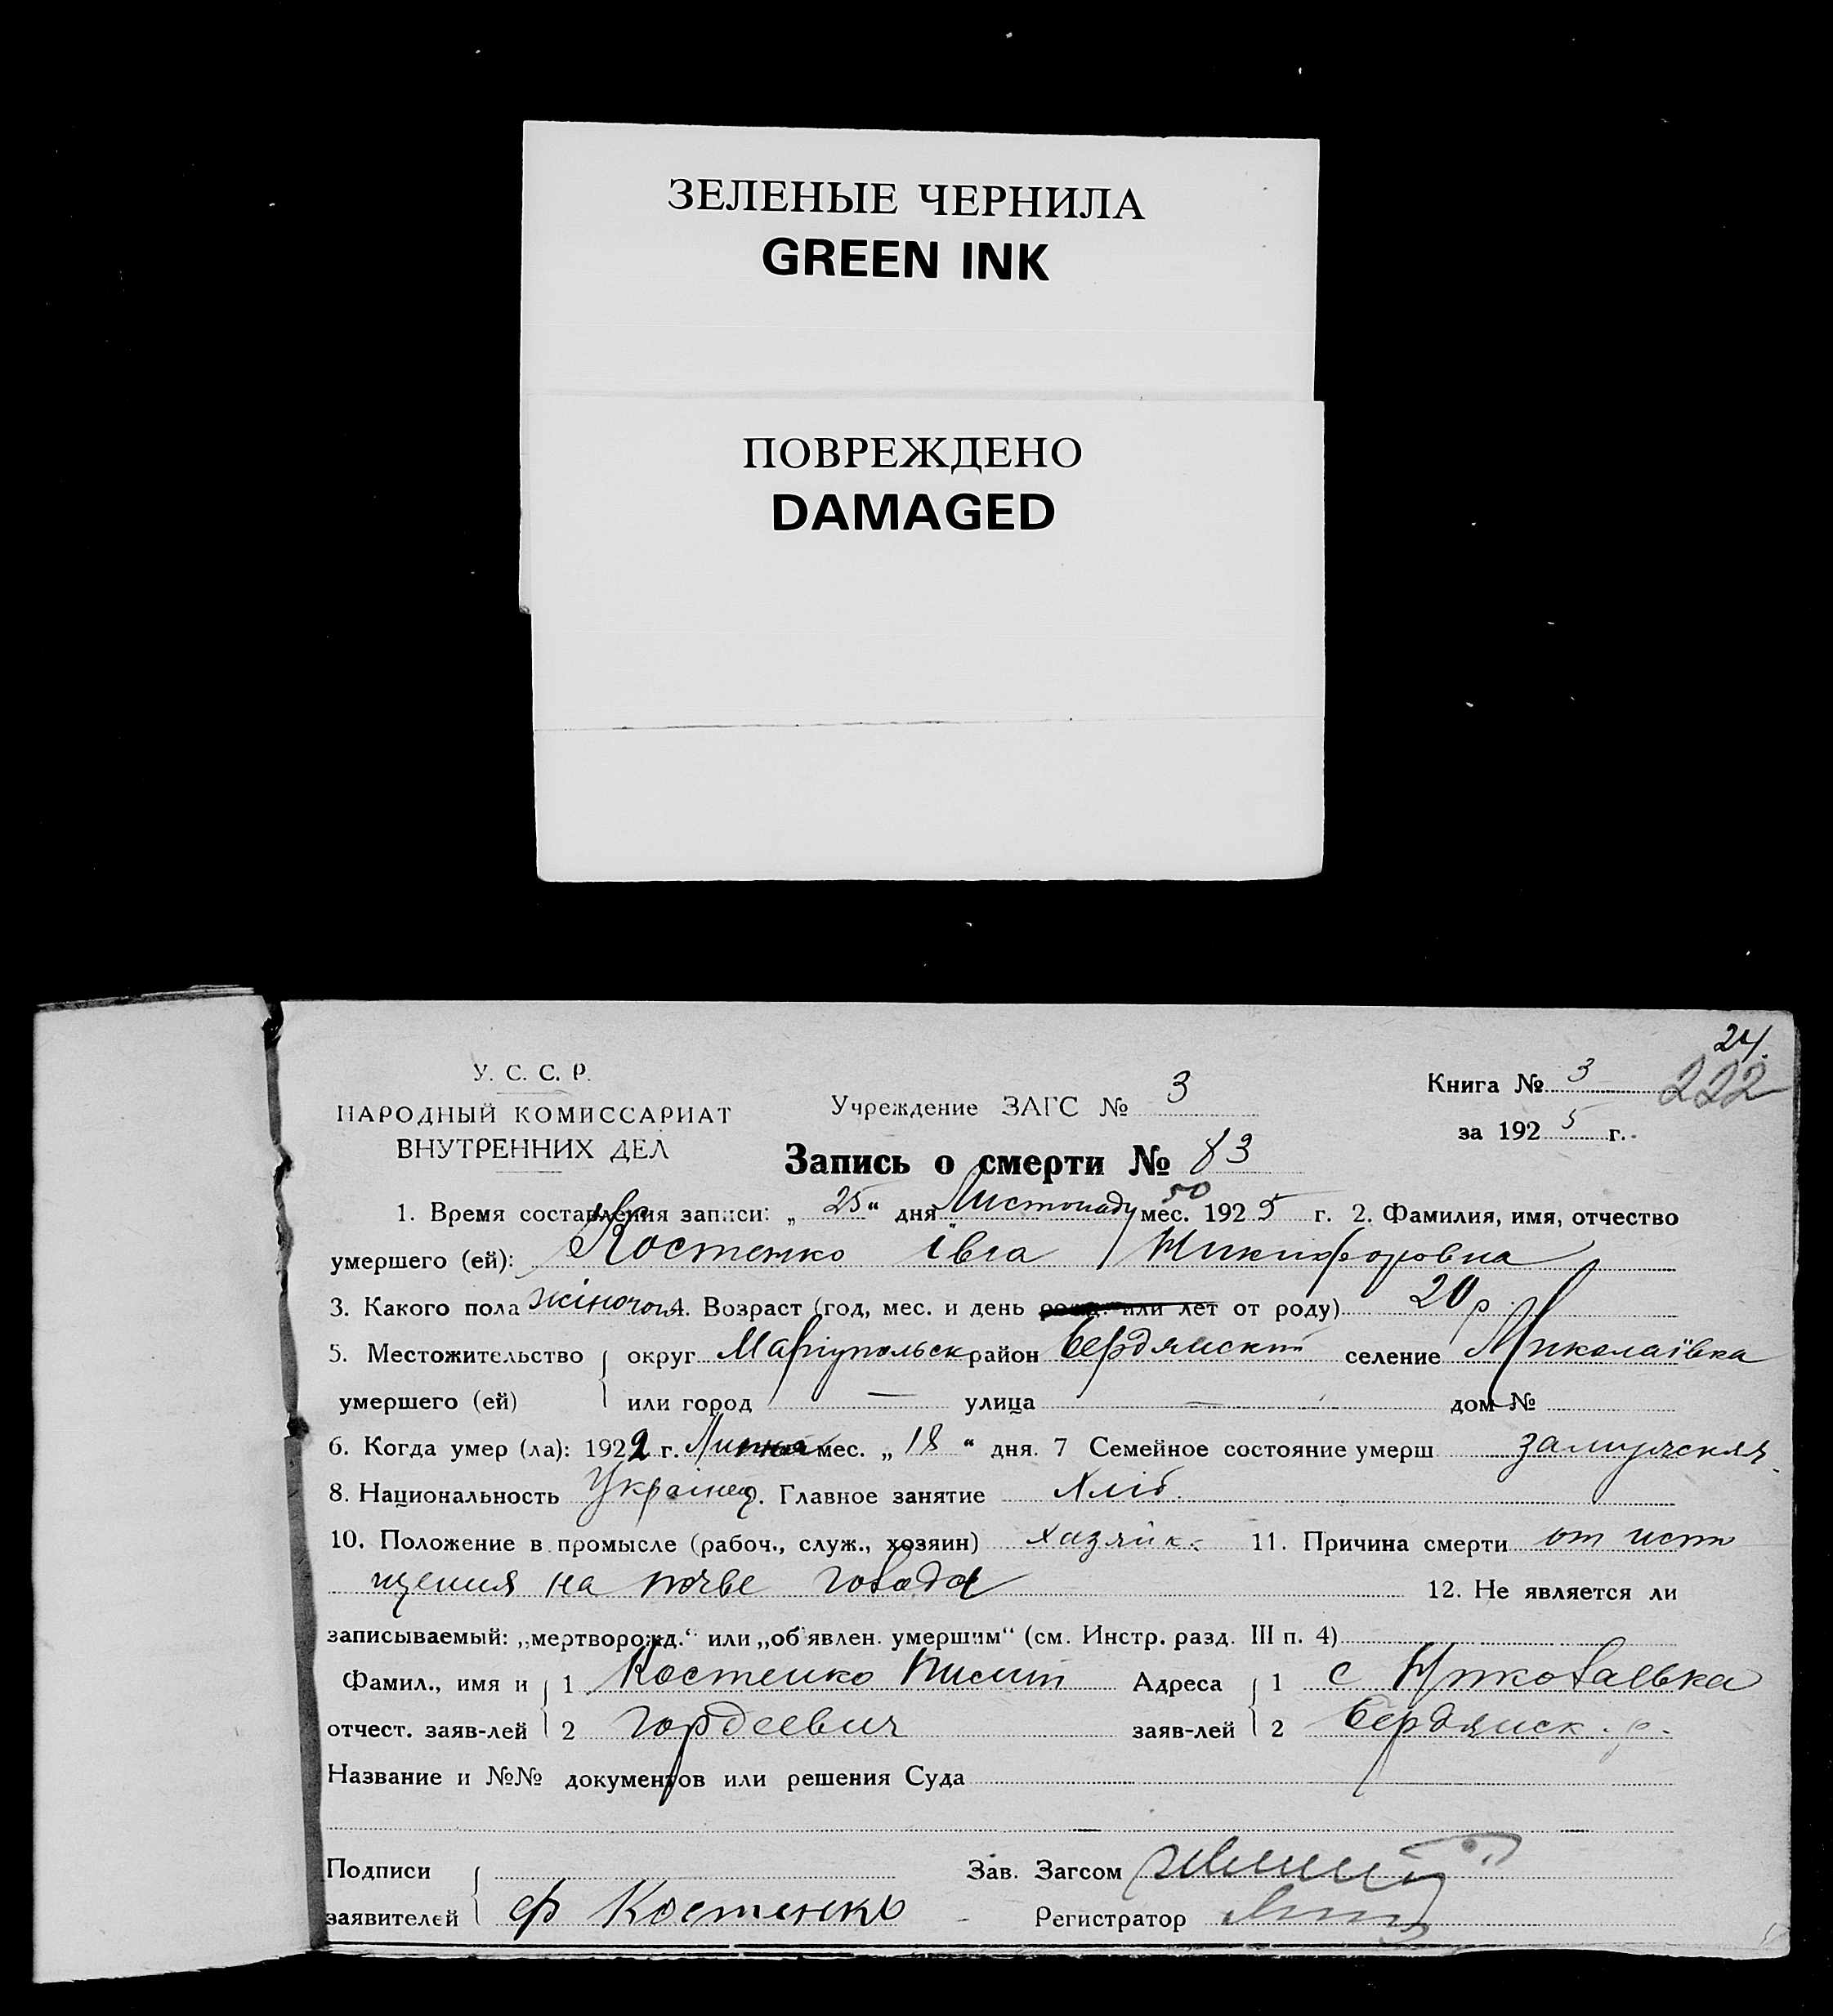 ЗЕЛЕНЫЕ ЧЕРНИЛА
GREEN INK
ПОВРЕЖДЕНО
DAMAGED
24.
222
У. С. С. Р.
НАРОДНЫЙ КОМИССАРИАТ
ВНУТРЕННИХ ДЕЛ
Учреждение ЗАГС № 3
Книга № 3
за 1925 г.
Запись о смерти № 83
50
1. Время составления записи: „25“ дня Листопаду мес. 1925 г. 2. Фамилия, имя, отчество
умершего (ей): Костенко Івга Микифоровна
3. Какого пола жіночоя 4. Возраст (год, мес. и день рожд. или лет от роду) 20 р
5. Местожительство округ Маріупольск район Бердянский селение Миколаївка
умершего (ей) или город — улица — дом №
6. Когда умер (ла): 1922 г. мес. „18“ дня. 7 Семейное состояние умерш замужняя
8. Национальность Українец 9. Главное занятие Хліб.
10. Положение в промысле (рабоч., служ., хозяин) хазяйк. 11. Причина смерти от исто
щения на почве голода 12. Не является ли
записываемый: „мертворожд.“ или „об'явлен. умершим“ (см. Инстр. разд. III п. 4)
Фамил., имя и 1 Костенко Адреса 1 с Николаевка
отчест. заяв-лей 2 Гордеевич заяв-лей 2 Бердянск. р.
Название и №№ документов или решения Суда
Подписи Зав. Загсом
заявителей Ф Костенко Регистратор